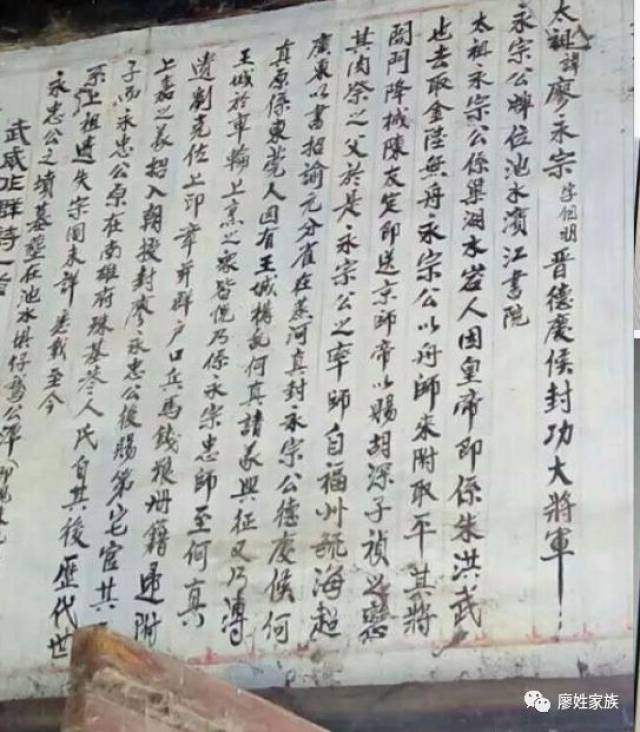 太祖諱廖永宗字伯明晋德慶侯封功大將軍
永宗公牌位池水濱江書院
太祖永宗公係巢湖水岩人因皇帝即係朱洪武
也去取金陸無舟永宗公以舟師來附取平其將
閣阿降城陳友定即送京師帝以賜胡深子禎之戀
其肉祭之父於是永宗公之率師自福州航海超
廣東以書招諭元分省在蒸河真封永宗公德慶侯何
真原係東莞人因有王城構乱何真請義興征又乃溥
王城於軍輪上京之衆皆悅乃係永宗忠師至何真
遺劉克佐上印章并群户口兵馬錢粮册籍逓附
上嘉之義招入朝授封廖永忠公後賜第宅官其
子而永忠公原在南雄府珠基巷人氏自其後歷代世
系江祖遺失宗圖未詳悉載至今
永忠公之墳基壟在池水
武威 群詩一首
廖姓家族